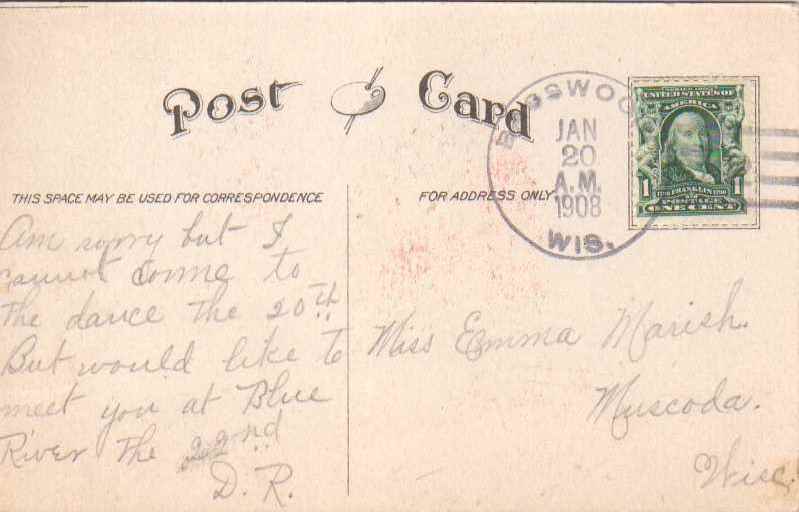 Post Card
JAN
20
A.M.
1908
WIS.
UNITED STATES OF
AMERICA
1 1
FRANKLIN
POSTAGE
ONE CENT
THIS SPACE MAY BE USED FOR CORRESPONDENCE
FOR ADDRESS ONLY
Am sorry but I
cannot come to
the dance the 20th
But would like to
meet you at Blue
River the 22nd
D. R.
Miss Emma Marish.
Muscoda.
Wisc.